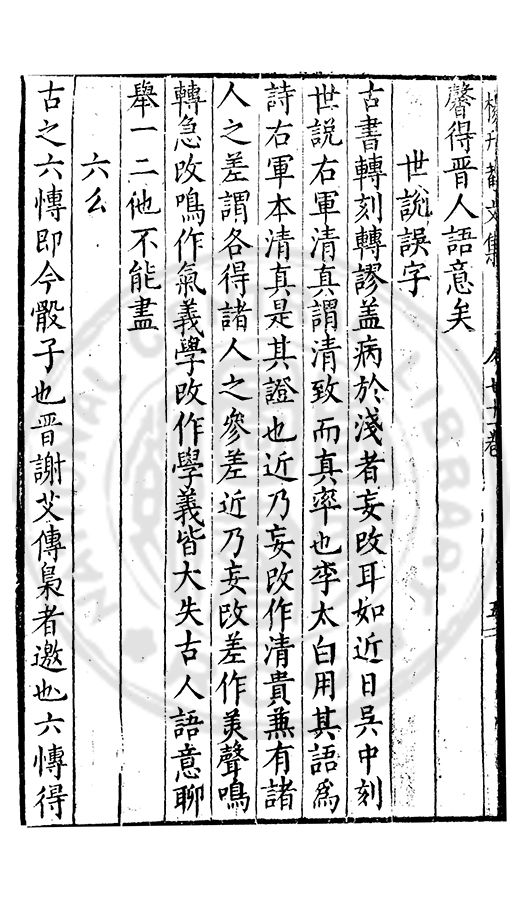 謦得晋人語意矣
世說誤字
古書轉刻轉謬盖病於淺者妄改耳如近日吳中刻
世說右軍清真謂清致而真率也李太白用其語爲
詩右軍本清真是其證也近乃妄改作清貴兼有諸
人之差謂各得諸人之參差近乃妄改差作美聲鳴
轉急改鳴作氣義學改作學義皆大失古人語意聊
舉一二他不能盡
六么
古之六愽即今骰子也晋謝艾傳梟者邀也六愽得